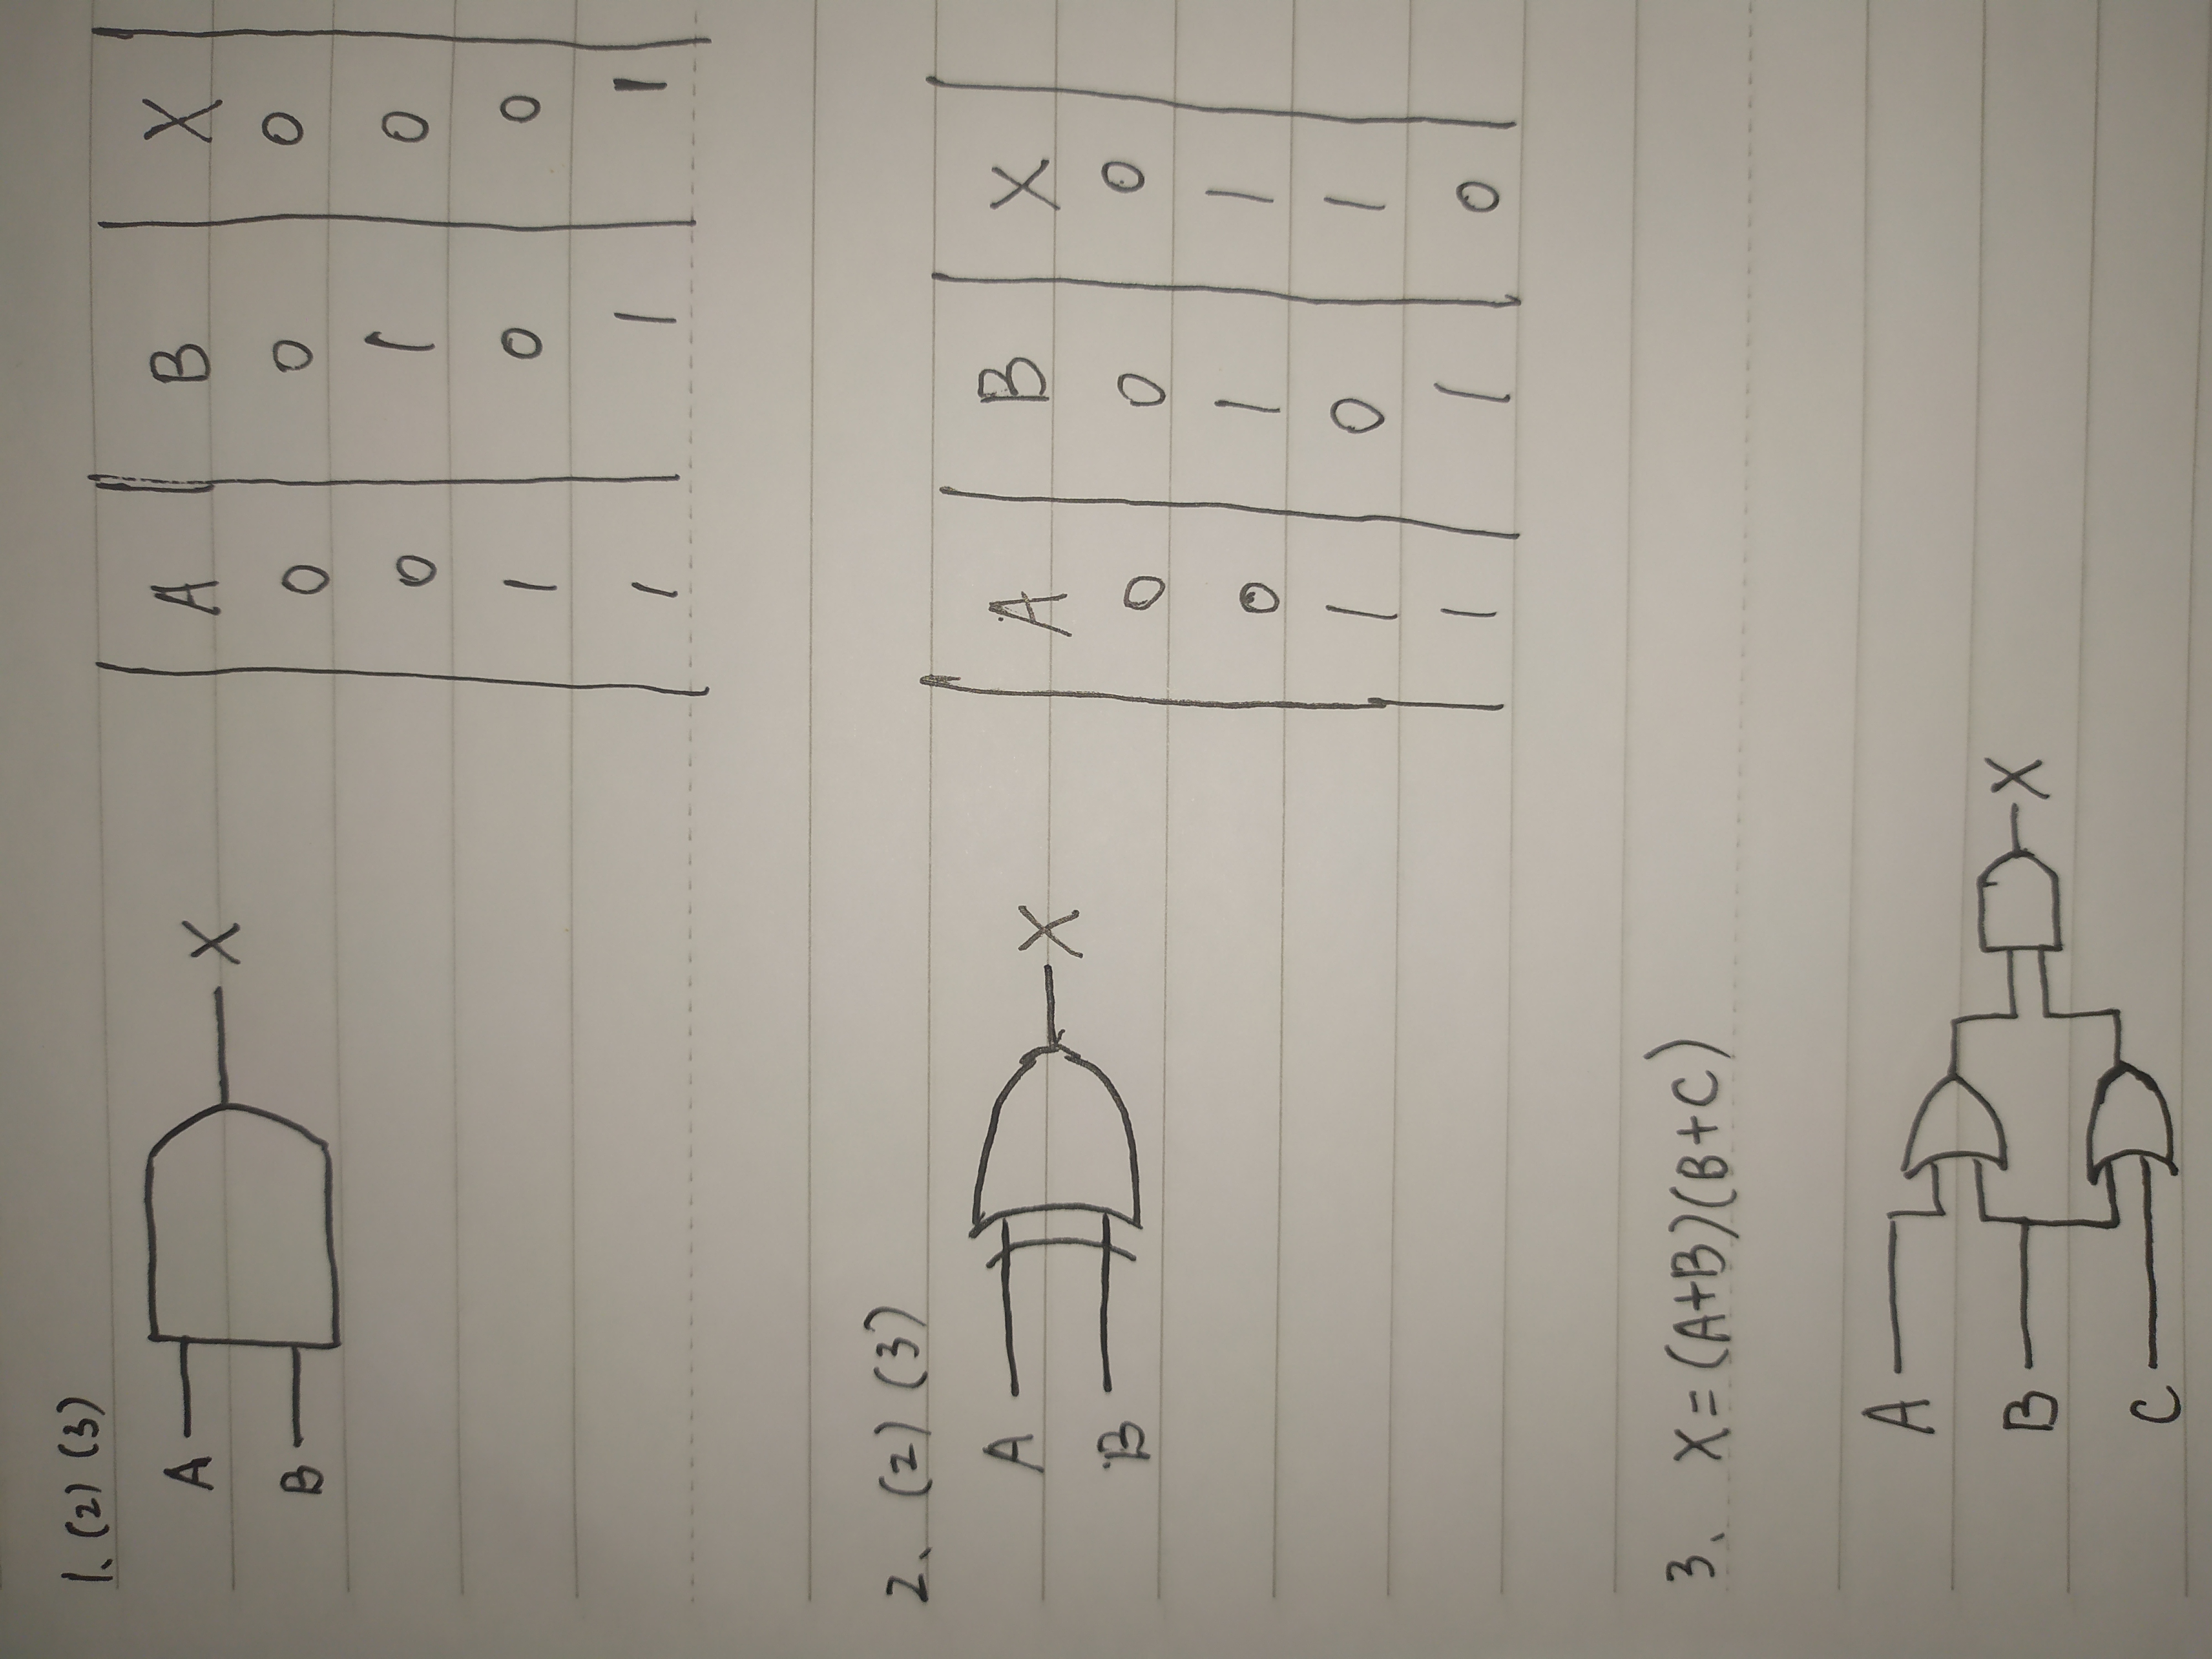 1、(2) (3)
A
B
X
A B X
0 0 0
0 1 0
1 0 0
1 1 1
2、 (2) (3)
A
B
X
A B X
0 0 0
0 1 1
1 0 1
1 1 0
3、 X=(A+B)(B+C)
A
B
C
X